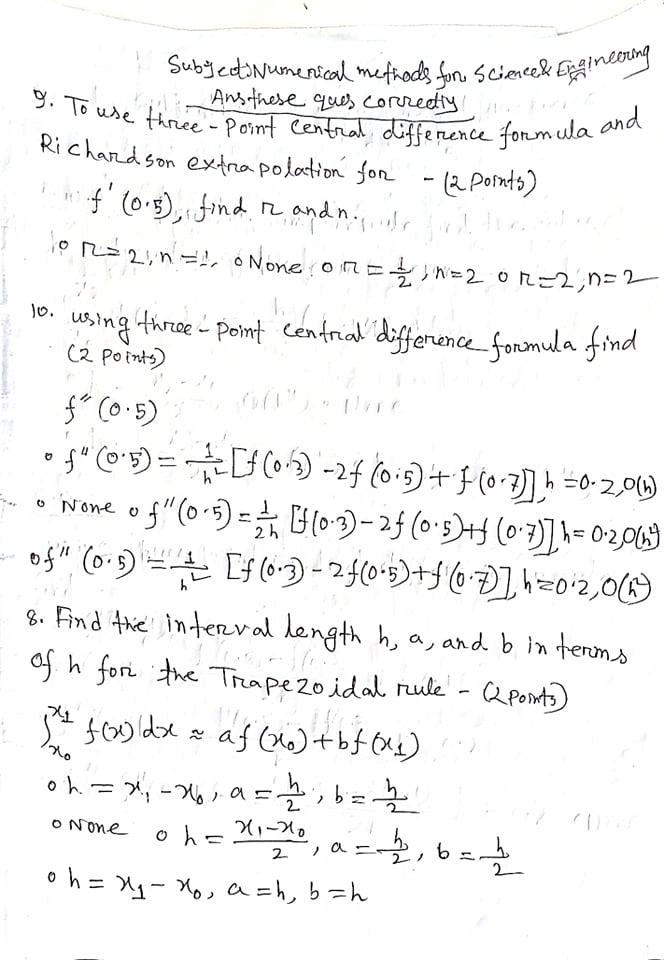 Subject: Numerical methods for Science & Engineering
Ans these ques correctly
9. To use three-Point Central difference formula and
Richardson extrapolation for - (2 Points)
f'(0.5), find r and n.
o r=2, n=1. o None o r=1/2, n=2 o r=2, n=2
10. using three-point central difference formula find
(2 points)
f"(0.5)
o f"(0.5) = 1/h² [f(0.3) -2f(0.5) + f(0.7)], h=0.2, O(h)
o None o f"(0.5) = 1/2h [f(0.3) - 2f(0.5)+f(0.7)], h=0.2, O(h²)
o f"(0.5) = 1/h² [f(0.3) - 2f(0.5)+f(0.7)], h=0.2, O(h²)
8. Find the interval length h, a, and b in terms
of h for the Trapezoidal rule - (2 points)
∫x₀^x₁ f(x) dx ≈ af(x₀)+bf(x₁)
o h = x₁-x₀, a = h/2, b = h/2
o None o h = (x₁-x₀)/2, a = h/2, b = h/2
o h = x₁ - x₀, a=h, b=h